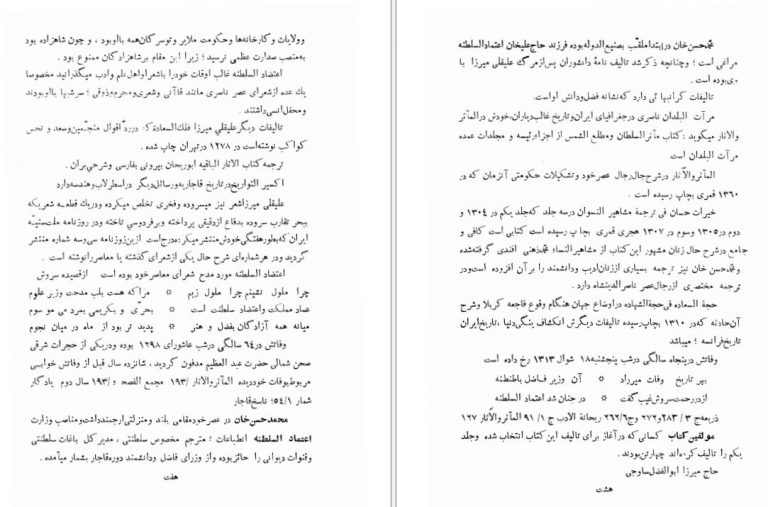 وولایات و کارخانه‌ها وحکومت ملایر و توسرکان همه بااوبود ، و چون شاهزاده بود
به‌منصب صدارت عظمی نرسید ؛ زیرا این مقام بر شاهزادگان ممنوع بود .
اعتضاد السلطنه غالب اوقات خودرا باشعر اواهل علم وادب میگذرانید مخصوصا
یك عده ازشعرای عصر ناصری مانند قاآنی وشعری ومحرم وذوقی ؛ سرشبها بااوبودند
ومحفل انسی داشتند .
تالیفات دیگر علیقلی میرزا فلك السعادة كه در رد اقوال منجمین وسعد و نحس
کواکب نوشته‌است در ۱۲۷۸ در تهران چاپ شده .
ترجمه کتاب الاثار الباقیه ابوریحان بیرونی بفارسی وشرحی بر آن .
اکسیر التواریخ در تاریخ قاجاریه ورسائل دیگر در اسطرلاب وهندسه دارد
علیقلی میرزا شعر نیز میسروده وفخری تخلص میکرده و در یك قطعه شعر یکه
ببحر تقارب سروده بدفاع از دقیقی پرداخته و بر فردوسی تاخته ودر روزنامه ملت سنیه
ایران که بطور هفتگی خودش منتشر میکرد مندرج است از این روزنامه سی وسه شماره منتشر
گردید ودر هر شماره‌ای شرح حال یکی ازشعرای گذشته یا معاصر را نوشته است .
اعتضاد السلطنه مورد مدح شعرای معاصر خود بوده است ازقصیده سروش
چرا ملول نشینم چرا ملول زیم * مرا که هست بلب مدحت وزیر علوم
عماد مملکت واعتضاد سلطنت است *
میانه همه آزادگان بفضل و هنر * پدید تر بود از ماه در میان نجوم
وفاتش در ۶۴ سالگی در شب عاشورای ۱۲۹۸ بوده ودر یکی از حجرات شرقی
صحن شمالی حضرت عبد العظیم مدفون گردید ، شانزده سال قبل از وفاتش خوابی
مربوط بوفات خود دیده المآثر والاثار /۱۹۳ مجمع الفصحا و /۱۹۳ سال دوم یادگار
شمار ۵۴/۱؛ ناسخ قاجار
محمدحسن خان در عصر خود مقامی بلند و منزلتی ارجمند داشت ومناصب وزارت
اعتماد السلطنه انطباعات ؛ مترجم مخصوص سلطنتی ، مدیر کل باغات سلطنتی
وقنوات دیوانی را حائز بوده واز وزرای فاضل ودانشمند دوره قاجار بشمار میآمده .
هفت
محمدحسن خان در ابتدا ملقب بصنیع الدوله بوده فرزند حاج علیخان اعتماد السلطنه
مراغی است ؛ وچنانچه ذکر شد تالیف نامهٔ دانشوران پس از مرگ علیقلی میرزا با
وی بوده است .
تالیفات گرانبها ئی دارد که نشانه فضل و دانش اواست.
مرآت البلدان ناصری در جغرافیای ایران و تاریخ غالب دیاران، خودش در المآثر
والاثار میگوید : کتاب مآثر السلطان ومطلع الشمس از اجزاء رئیسه و مجلدات عمده
مرآت البلدان است.
المآثر والآثار در شرح حال رجال عصر خود و تشکیلات حکومتی آنزمان که در
۱۳۶۰ قمری بچاپ رسیده است .
خیرات حسان فی ترجمة مشاهیر النسوان در سه جلد که جلد یکم در ۱۳۰۴ و
دوم در ۱۳۰۵ وسوم در ۱۳۰۷ هجری قمری بچا پ رسیده است کتابی است کافی و
جامع در شرح حال زنان مشهور این کتاب از مشاهیر النساء محمدذهنی افندی گرفته شده
ومحمدحسن خان نیز ترجمه بسیاری از زنان ادیب و دانشمند را بر آن افزوده است ودر
ترجمه مختصری از رجال عصر ناصر الدینشاه دارد .
حجة السعاده فی حجة الشهاده در اوضاع جهان هنگام وقوع فاجعه کربلا وشرح
آن حادثه که در ۱۳۱۰ بچاپ رسیده تالیفات دیگرش انکشاف ینگی دنیا ، تاریخ ایران
تاریخ فرانسه ؛ میباشد
وفاتش در پنجاه سالگی در شب پنجشنبه ۱۸ شوال ۱۳۱۳ رخ داده است
بهر تاریخ وفات میرراد * آن وزیر فاضل باطنطنه
از در رحمت سروش غیب گفت * در جنان شد اعتماد السلطنه
ذریعه ج ۳ / ۲۸۳ و ۲۷۲ وج ۲۶۲/۶ ریحانة الادب ج ۱/ ۹۱ المآثر والآثار ۱۲۷
مؤلفین کتاب کسانی که در آغاز برای تالیف این کتاب انتخاب شده وجلد
یکم را تالیف کرده‌اند چهار تن بودند .
حاج میرزا ابوالفضل ساوجی
هشت